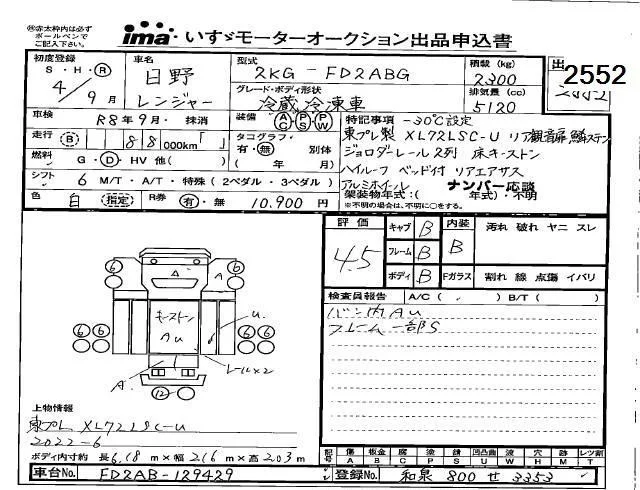 ※赤太枠内は必ず
ボールペンで
ご記入下さい。
ima いすゞモーターオークション出品申込書
初度登録
S・H・R
4年9月
車名
日野
レンジャー
型式
2KG-FD2ABG
グレード・ボディ形状
冷蔵冷凍車
積載(kg)
2300
排気量(cc)
5120
2552
車検
R8年9月・抹消
装備
AC PS PW
走行
188000km「 」
タコグラフ
有・無 別体
( 年 月)
燃料
G・D・HV 他( )
シフト
6 M/T・A/T・特殊(2ペダル・3ペダル)
色
白(指定)
R券 有・無 10.900円
特記事項 -30℃設定
東プレ製 XL72LSC-U リア観音扉 鱗ステン
ジョロダーレール2列 床キーストン
ハイルーフ ベッド付 リアエアサス
アルミホイール ナンバー応談
架装物年式:( 年式)・不明
※不明の場合は、不明に○をする。
評価
4.5
キャブ B
フレーム B
ボディ B
内装
B
Fガラス
汚れ 破れ ヤニ スレ
割れ 線 点傷 イバリ
検査員報告 A/C( ) B/T( )
バン内AU
フレーム一部S
キーストン
AU
U
A
レール×2
A
6 6
6 6 6 6
12
上物情報
東プレ XL72LSC-U
2022-6
ボディ内寸約 長6.18m×幅2.16m×高2.03m
記号 傷A 板金B 腐C 塗P 錆S 凹凸曲U 波W 穴H 摩M レツ割T
車台No. FD2AB-129429
登録No. 和泉 800 せ 3353